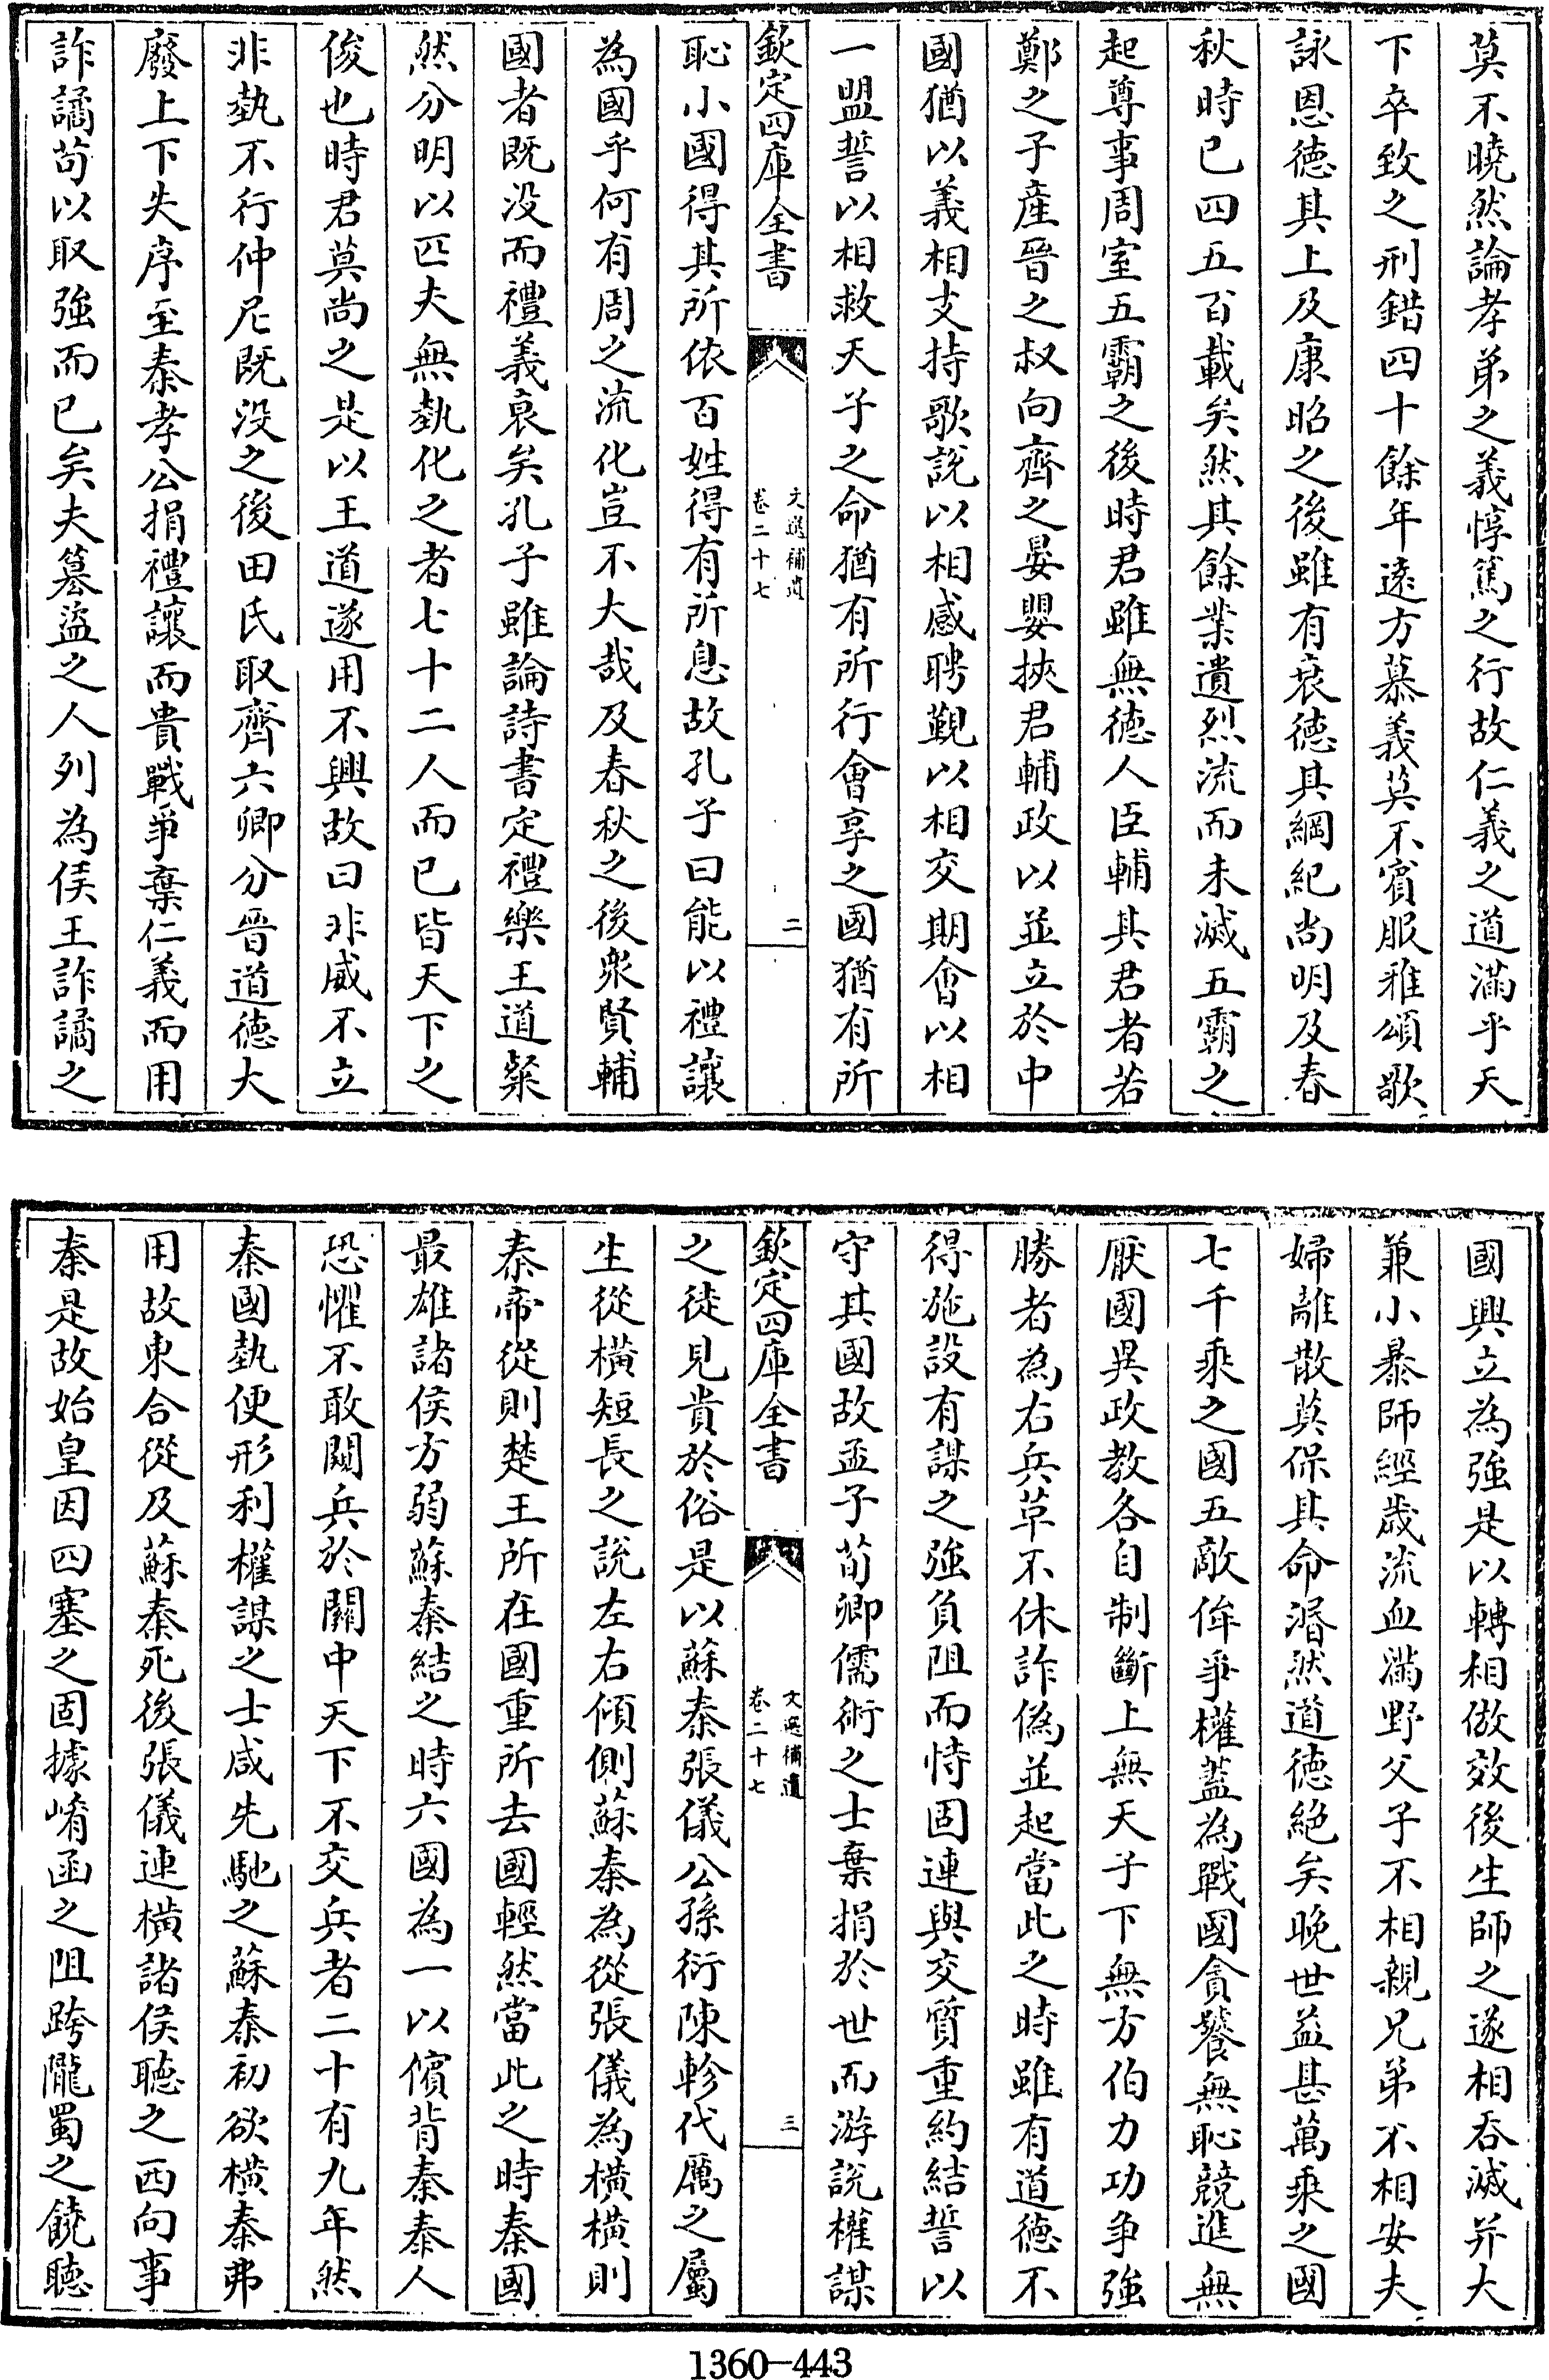 莫不曉然論孝弟之義惇篤之行故仁義之道滿乎天
下卒致之刑錯四十餘年遠方慕義莫不賓服雅頌歌
詠恩德其上及康昭之後雖有衰德其綱紀尚明及春
秋時已四五百載矣然其餘業遺烈流而未滅五霸之
起尊事周室五霸之後時君雖無德人臣輔其君者若
鄭之子産晉之叔向齊之晏嬰挾君輔政以並立於中
國猶以義相支持歌說以相感聘覲以相交期會以相
一盟誓以相救天子之命猶有所行會享之國猶有所
欽定四庫全書
文選補遺
卷二十七
二
恥小國得其所依百姓得有所息故孔子曰能以禮讓
為國乎何有周之流化豈不大哉及春秋之後衆賢輔
國者既没而禮義衰矣孔子雖論詩書定禮樂王道粲
然分明以匹夫無埶化之者七十二人而已皆天下之
俊也時君莫尚之是以王道遂用不興故曰非威不立
非埶不行仲尼既没之後田氏取齊六卿分晉道德大
廢上下失序至秦孝公捐禮讓而貴戰爭棄仁義而用
詐譎苟以取強而已矣夫篡盜之人列為侯王詐譎之
國興立為強是以轉相倣效後生師之遂相吞滅并大
兼小暴師經歲流血滿野父子不相親兄弟不相安夫
婦離散莫保其命湣然道德絕矣晚世益甚萬乘之國
七千乘之國五敵侔爭權蓋為戰國貪饕無恥競進無
厭國異政教各自制斷上無天子下無方伯力功争強
勝者為右兵革不休詐偽並起當此之時雖有道德不
得施設有謀之強負阻而恃固連與交質重約結誓以
守其國故孟子荀卿儒術之士棄捐於世而游說權謀
欽定四庫全書
文選補遺
卷二十七
三
之徒見貴於俗是以蘇秦張儀公孫衍陳軫代厲之屬
生從橫短長之說左右傾側蘇秦為從張儀為橫橫則
秦帝從則楚王所在國重所去國輕然當此之時秦國
最雄諸侯方弱蘇秦結之時六國為一以儐背秦秦人
恐懼不敢闚兵於關中天下不交兵者二十有九年然
秦國埶便形利權謀之士咸先馳之蘇秦初欲橫秦弗
用故東合從及蘇秦死後張儀連橫諸侯聽之西向事
秦是故始皇因四塞之固據崤函之阻跨隴蜀之饒聽
1360-443